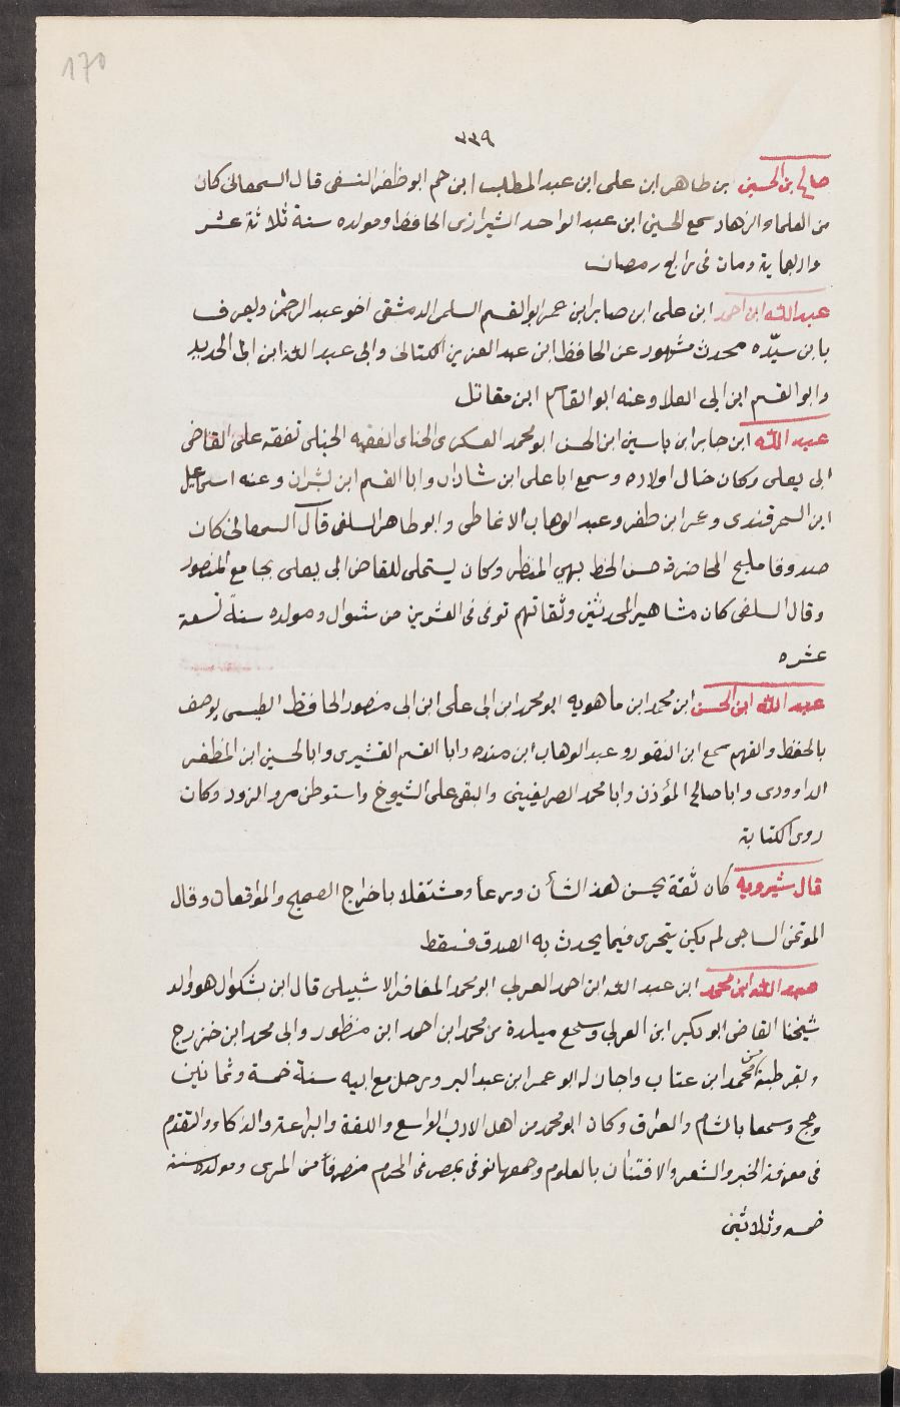 170
٣٣٩
صالح بن الحسين بن طاهر ابن على ابن عبد المطلب ابن حم ابو ظفر النسفى قال السمعانى كان
من العلما والزهاد سمع الحسين ابن عبد الواحد الشيرازى الحافظ ومولده سنة ثلاثة عشر
واربعماية ومات فى رابع رمضان
عبد الله ابن احمد ابن على ابن صابر ابن عمر ابو القسم السلمى الدمشقى اخو عبد الرحمن ويعرف
بابن سيّده محدث مشهور عن الحافظ ابن عبد العزيز الكتانى وابى عبد الله ابن ابى الحديد
وابو القسم ابن ابى العلا وعنه ابو القاسم ابن مقاتل
عبد الله ابن جابر ابن ياسين ابن الحسن ابو محمد العسكرى الحناى الفقيه الحنبلى تفقه على القاضى
ابى يعلى وكان خال اولاده وسمع ابا على ابن شاذان وابا القسم ابن بشران وعنه اسماعيل
ابن السمرقندى وعمر ابن ظفر وعبد الوهاب الانماطى وابو طاهر السلفى قال السمعانى كان
صدوقا مليح المحاضرة حسن الخط بهي المنظر وكان يستملى للقاضى ابى يعلى بجامع المنصور
وقال السلفى كان مشاهير المحدثين وثقاتهم توفى فى العشرين من شوال ومولده سنة تسعة
عشره
عبد الله ابن الحسن ابن محمد ابن ماهويه ابو محمد ابن ابى على ابن ابى منصور الحافظ الطبسى يوصف
بالحفظ والفهم سمع ابن النقور وعبد الوهاب ابن منده وابا القسم القشيرى وابا الحسين ابن المظفر
الداوودى وابا صالح المؤذن وابا محمد الصريفينى والبقى على الشيوخ واستوطن مرو الرود وكان
روى الكتابة
قال شيرويه كان ثقة يحسن هذ الشأن ورعاً ومشتغلا باخراج الصحيح والموافعات وقال
الموتمن الساجى لم يكن يتحرى فيما يحدث به الصدق فسقط
عبد الله ابن محمد ابن عبد الله ابن احمد العربى ابو محمد المعافر الاشبيلى قال ابن بشكوال هو والد
شيخنا القاضى ابو بكر ابن العربى وسمع ببلدة من محمد ابن احمد ابن منظور وابى محمد ابن خزرج
وبقرطبة من محمد ابن عتاب واجازله ابو عمر ابن عبد البر ورحل مع ابيه سنة خمسة وثمانين
وحج وسمعا بالشام والعراق وكان ابو محمد من اهل الادب الواسع واللغة والبراعة والذكاء والتقدم
فى معرفة الخبر والشعر والافتنان بالعلوم وجمعها توفى بمصر فى المحرم منصرفاً من المرى ومولده سنة
خمسه وثلاثين